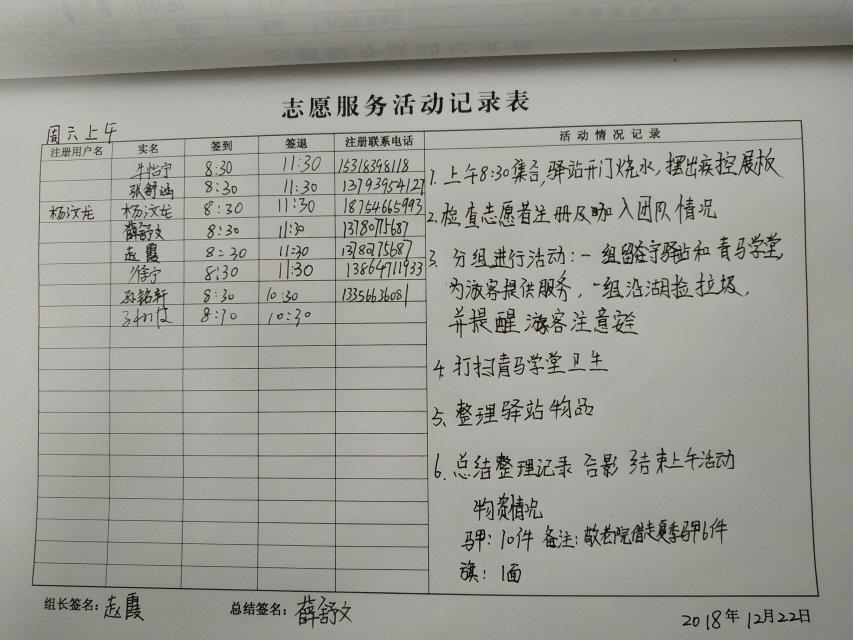 志愿服务活动记录表
周六上午
注册用户名 实名 签到 签退 注册联系电话 活动情况记录
牛怡宁 8:30 11:30 15318398118
张舒涵 8:30 11:30 13793954127
杨汶龙 杨汶龙 8:30 11:30 18754665993
薛舒文 8:30 11:30 13780775687
赵霞 8:30 11:30 13780775687
徐宁 8:30 11:30 13864711933
孙铭轩 8:30 10:30 13356636081
8:30 10:30
1. 上午8:30集合,驿站开门烧水,摆出疾控展板
2. 检查志愿者注册及加入团队情况
3. 分组进行活动:一组留守驿站和青马学堂,
为游客提供服务,一组沿湖捡垃圾,
并提醒游客注意安全
4. 打扫青马学堂卫生
5. 整理驿站物品
6. 总结整理记录 合影 结束上午活动
物资情况
马甲:10件 备注:敬老院借走夏季马甲6件
旗:1面
组长签名:赵霞 总结签名:薛舒文 2018年12月22日